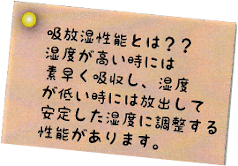 吸放湿性能とは??
湿度が高い時には
素早く吸収し、湿度
が低い時には放出して
安定した湿度に調整する
性能があります。